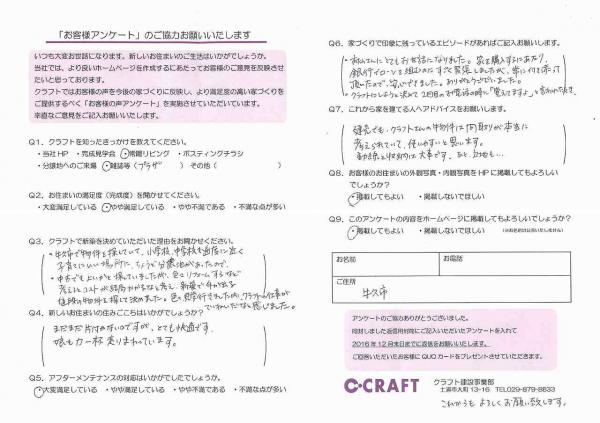 「お客様アンケート」のご協力お願いいたします
いつも大変お世話になります。新しいお住まいのご生活はいかがでしょうか。
当社では、より良いホームページを作成するにあたってお客様のご意見を反映させ
たいと思っております。
クラフトではお客様の声を今後の家づくりに反映し、より満足度の高い家づくりを
ご提供するべく「お客様の声アンケート」を実施させていただいています。
率直なご意見をご記入お願いします。
Q1、クラフトを知ったきっかけを教えてください。
・当社HP ・完成見学会 ・常陽リビング ・ポスティングチラシ
・分譲地へのご来場 ・雑誌等(プラザ) その他( )
Q2、お住まいの満足度(完成度)を聞かせてください。
・大変満足している ・やや満足している ・やや不満である ・不満な点が多い
Q3、クラフトで新築を決めていただいた理由をお聞かせください。
・牛久市で物件を探していて、小学校、中学校も適度に近く
子育てにいい場所に、ちょうど分譲地があったので。
・中古でも良いかと探していましたが、色々リフォームするなど
考えるとコストが結局かかるなと考え、新築で
値段の物件を探して決めました。色々見学行きましたが、クラフトの仕事が
ていねいだなと感じました。
Q4、新しいお住まいの住みここちはいかがでしょうか?
まだまだ片付かないのですが、とても快適です。
娘も力一杯走りまわれています。
Q5、アフターメンテナンスの対応はいかがでしたでしょうか?
・大変満足している ・やや満足している ・やや不満である ・不満な点が多い
Q6、家づくりで印象に残っているエピソードがあればご記入お願いします。
さんにとてもお世話になりました。家を購入するにあたり、
銀行でローンを組むのにすごく緊張しましたが、常に付き添って
頂いたので、安心できました。ありがとうございました。
クラフトにしようと決めて2回目の電話の時に「覚えてますよ」と言われたとき。
Q7、これから家を建てる人へアドバイスをお願いします。
建売でも、クラフトさんの物件は間取りが本当に
考えられていて、住みやすいと思います。
動線と収納は大事です。あと、立地も…
Q8、お客様のお住まいの外観写真・内観写真をHPに掲載してもよろしい
でしょうか?
・掲載してもよい ・掲載しないでほしい
Q9、このアンケートの内容をホームページに掲載してもよろしいでしょうか?
・掲載してもよい ・掲載しないでほしい (※お名前は公表いたしません)
お名前 お電話
ご住所
牛久市
アンケートのご協力ありがとうございました。
同封しました返信用封筒にご記入いただいたアンケートを入れて
2016年12月末日までに返信をお願いします。
ご回答いただいたお客様にQUOカードをプレゼントさせていただきます。
C-CRAFT クラフト建設事業部
土浦市大町13-16 TEL029-879-8833
これからもよろしくお願い致します。